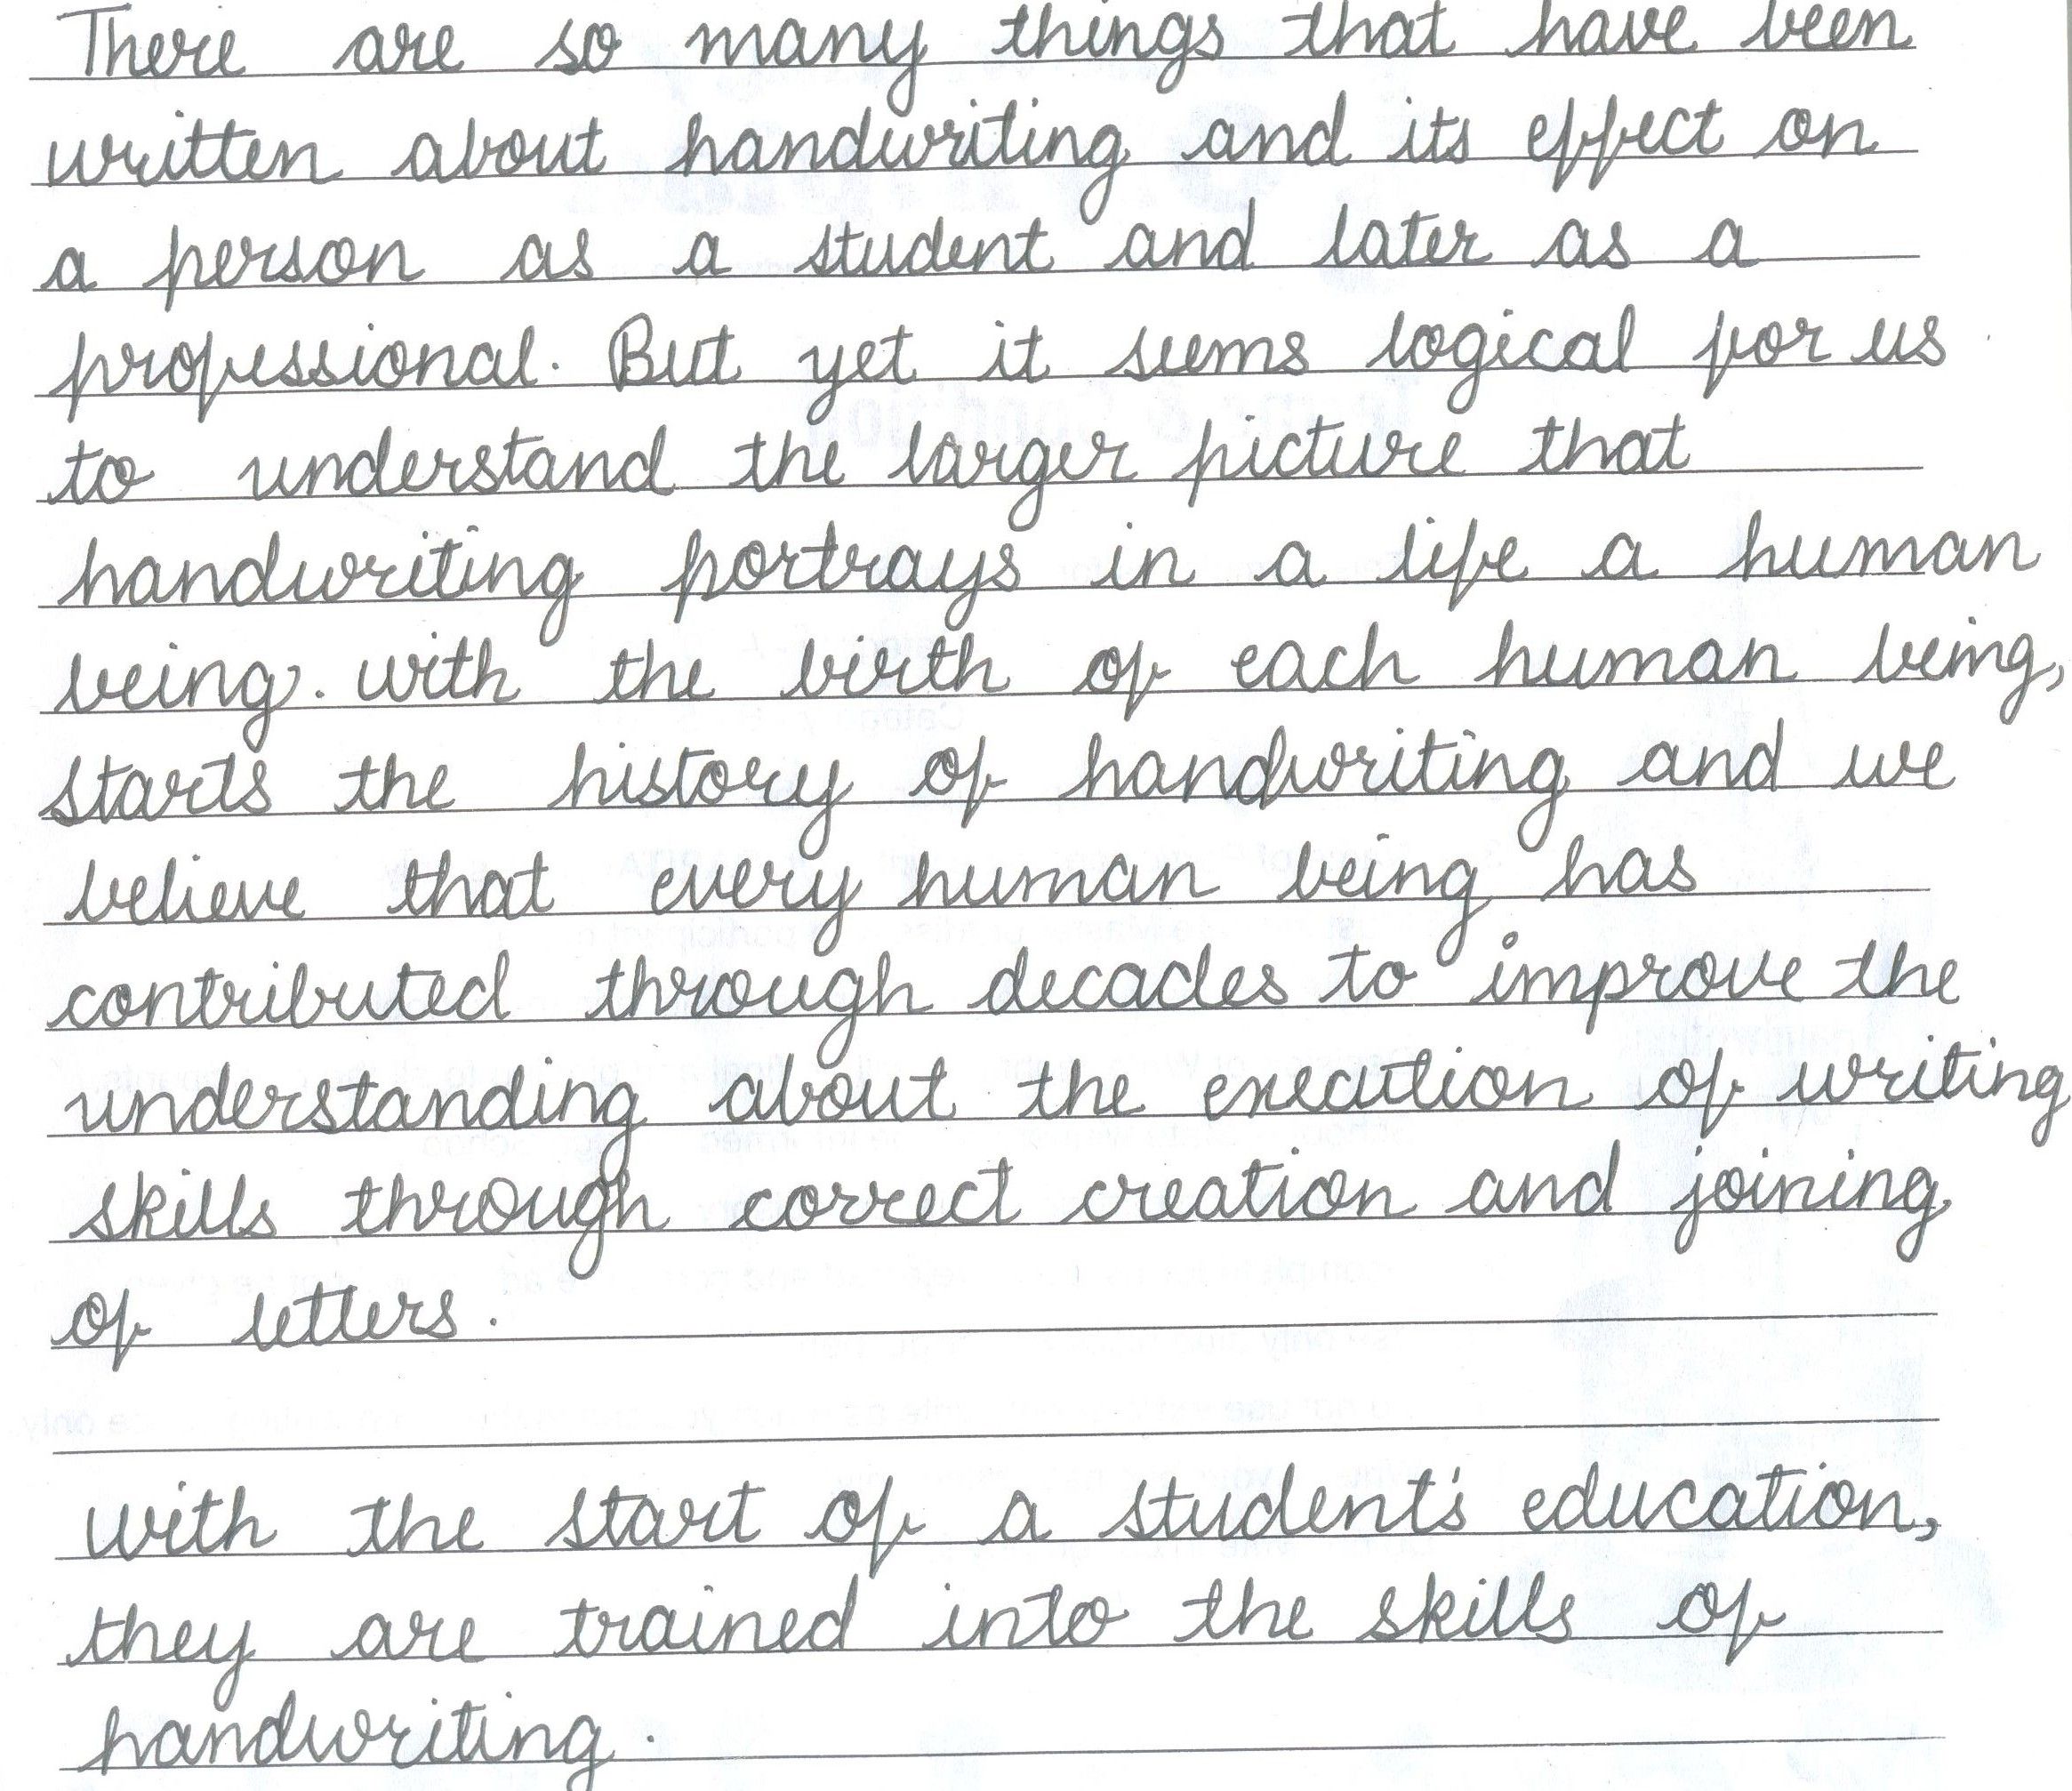 There are so many things that have been
written about handwriting and its effect on
a person as a student and later as a
professional. But yet it seems logical for us
to understand the larger picture that
handwriting portrays in a life a human
being. with the birth of each human being,
starts the history of handwriting and we
believe that every human being has
contributed through decades to improve the
understanding about the execution of writing
skills through correct creation and joining
of letters.
with the start of a student's education,
they are trained into the skills of
handwriting.